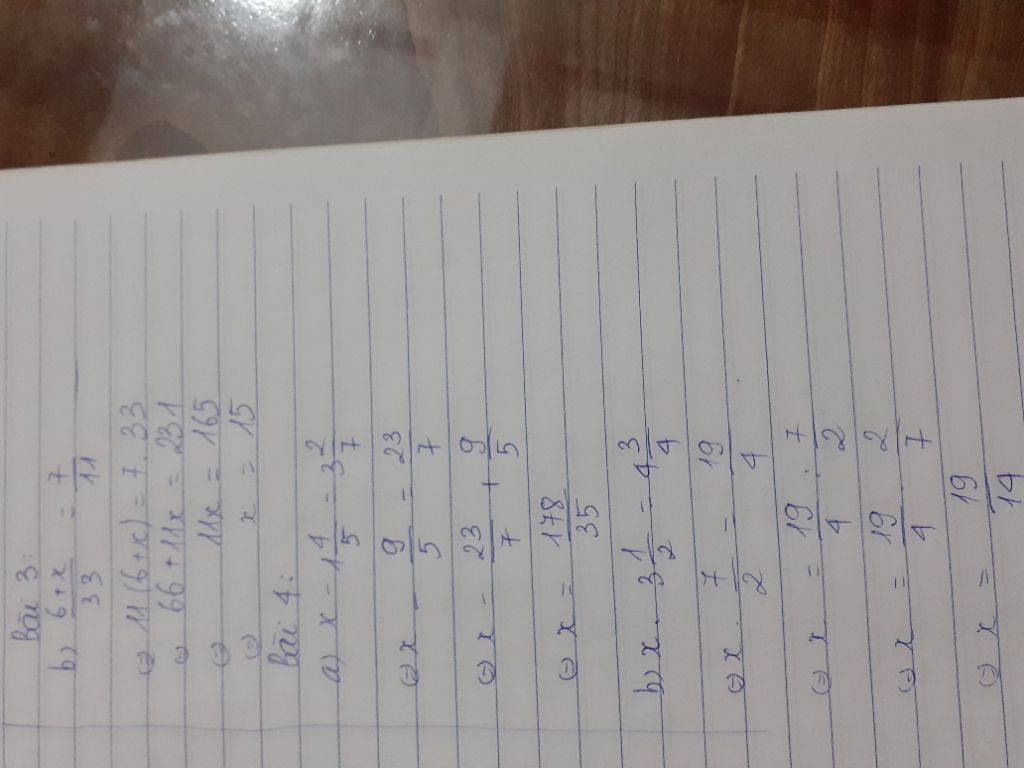 Bài 3:
b) 6+x/33 = 7/11
⇔ 11(6+x) = 7.33
⇔ 66+11x = 231
⇔ 11x = 165
⇔ x = 15
Bài 4:
a) x - 1 4/5 = 3 2/7
⇔ x - 9/5 = 23/7
⇔ x - 23/7 + 9/5
⇔ x = 178/35
b) x . 3 1/2 = 4 3/4
⇔ x . 7/2 = 19/4
⇔ x = 19/4 : 7/2
⇔ x = 19/4 . 2/7
⇔ x = 19/14